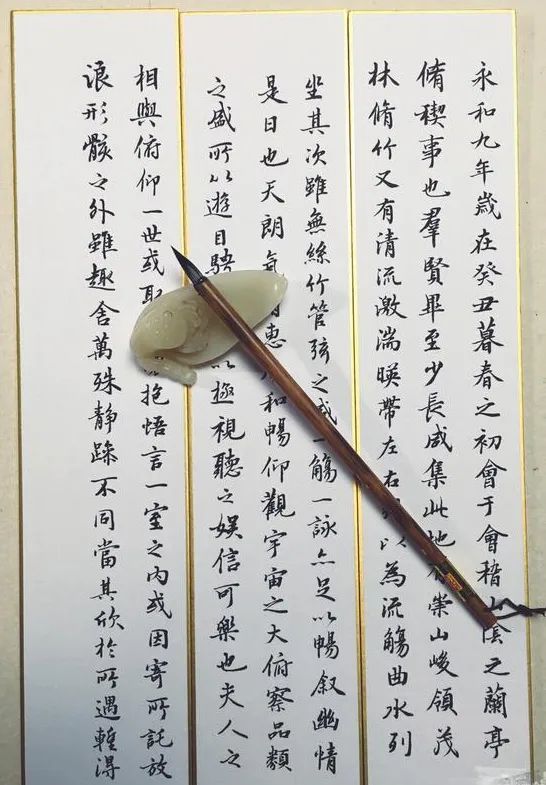 永和九年歲在癸丑暮春之初會于會稽山陰之蘭亭
脩稧事也羣賢畢至少長咸集此地有崇山峻領茂
林脩竹又有清流激湍暎帶左右引以為流觴曲水列
坐其次雖無絲竹管弦之盛一觴一詠亦足以暢叙幽情
是日也天朗氣清惠和暢仰觀宇宙之大俯察品類
之盛所以遊目騁以極視聽之娛信可樂也夫人之
相與俯仰一世或取抱悟言一室之內或因寄所託放
浪形骸之外雖趣舍萬殊靜躁不同當其欣於所遇蹔得